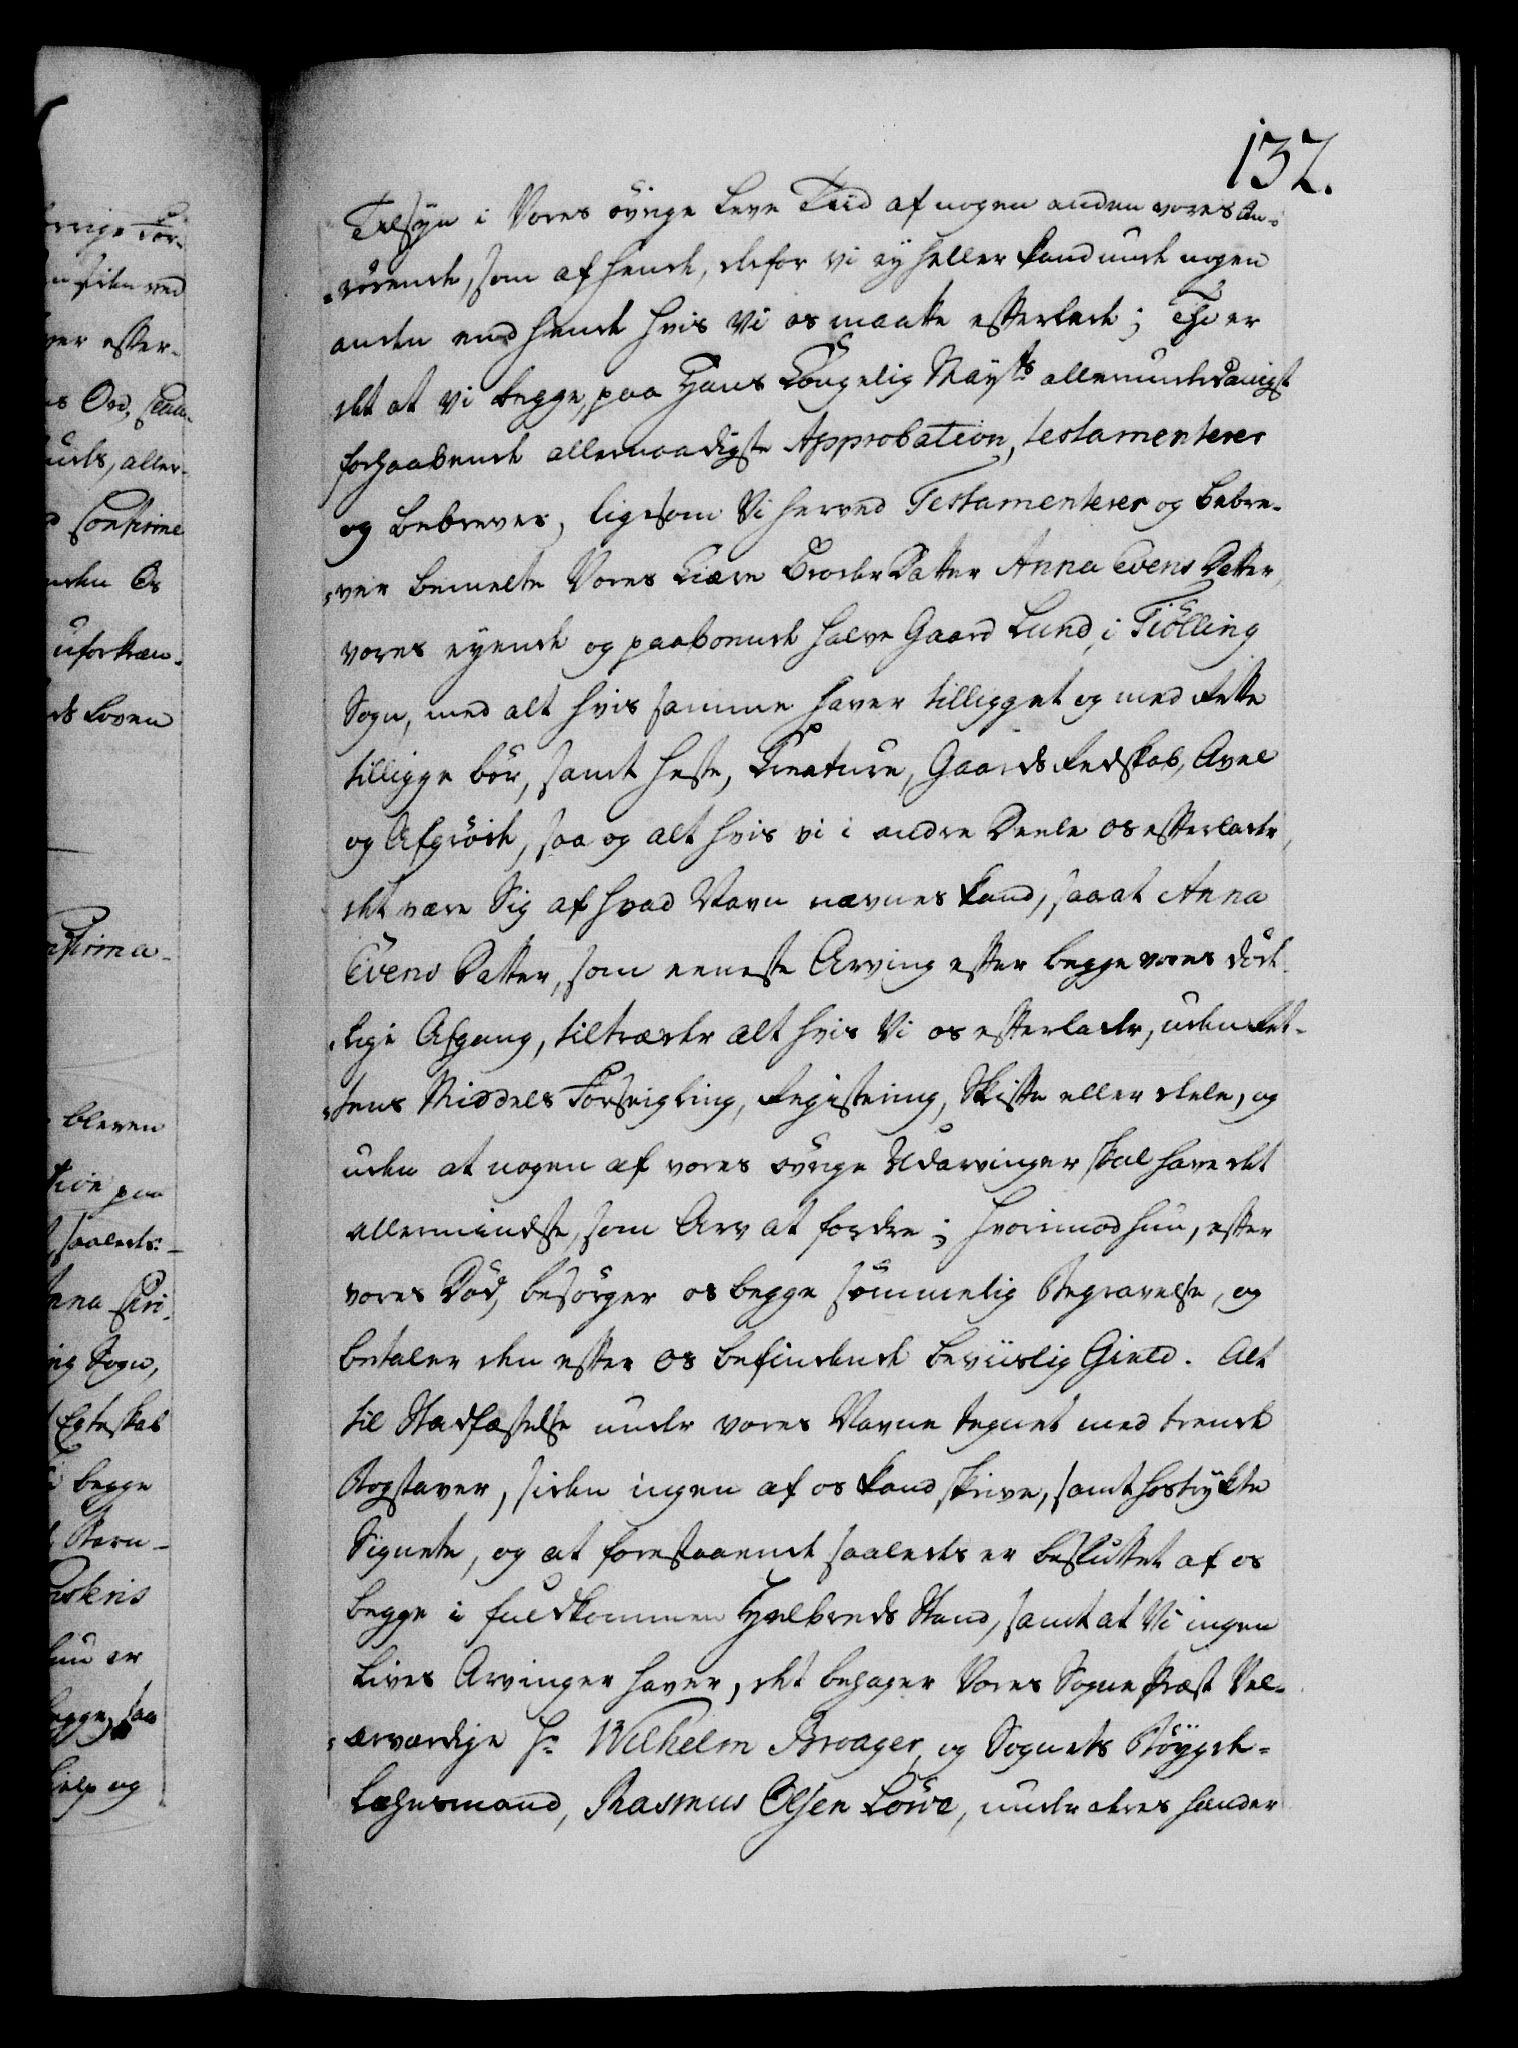 132.
Tilsyn i Vores övrige Leve Tiid af nogen anden vores An-
-rörende, som af hende, derfor vi ey heller kand unde nogen
anden end hende hvis vi os maatte efterlade; Thi er
det at vi begge, paa Hans Kongelig Mayts allerunderdanigst
forhaabende allernaadigste Approbation, testamenterer
og bebrever, ligesom Vi herved Testamenterer og bebre-
-ver bemelte Vores Kiære Broder Datter Anna Evens Datter,
vores eyende og paaboende halve Gaard Lund, i Tiölling
Sogn, med alt hvis samme haver tilligget og med Rette
tilligge bör, samt Heste, Creature, Gaards Redskab, Avel
og Afgröde, saa og alt hvis vi i andre Deele os efterlader,
det være Sig af hvad Navn nævnes kand, saa at Anna
Evens Datter, som eeneste Arving efter begge vores död-
-lige Afgang, tiltræder alt hvis Vi os efterlader, uden Ret-
-tens Middels Forseigling, Registering, Skifte eller dele, og
uden at nogen af vores övrige Udarvinger skal have det
allermindste, som Arv at fordre; hvorimod hun, efter
vores Död, besörger os begge sömmelig Begravelse, og
betaler den efter os befindende beviislig Gield. Alt
til Stadfæstelse under vores Navne tegnet med trende
Bogstaver, siden ingen af os kand skrive, samt hostrykte
Signete, og at forestaaende saaledes er besluttet af os
begge i fuldkommen Helbreds Stand, samt at Vi ingen
Lives Arvinger haver, det behager Vores Sogne Præst Vel-
-ærværdige Hr Wilhelm Broager, og Sognets Böygde-
Lehnsmand, Rasmus Olsen Löwe, under deres Hænder